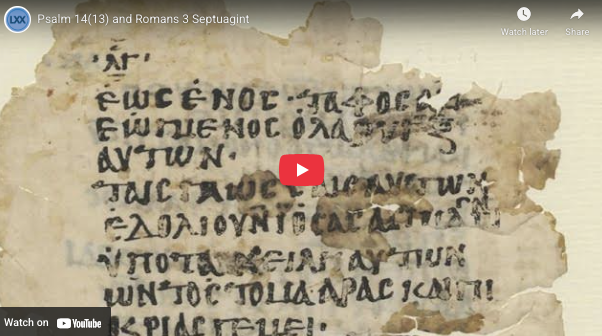 LXX Psalm 14(13) and Romans 3 Septuagint
Watch later Share
ΕΩC ΕΝΟC · ΤΑΦΟC
ΕΩΓΜΕΝΟC ΟΛΑ
ΑΥΤΩΝ·
ΤΑΙC ΑΥΤΩΝ
ΕΔΟΛΙΟΥΝ ΙΟC
ΥΠΟ ΤΑ ΧΕΙΛΗ ΑΥΤΩΝ
ΩΝ ΤΟ CΤΟΜΑ ΑΡΑC ΚΑΙ ΠΙ
ΚΡΙΑC ΓΕΜΕΙ·
Watch on YouTube